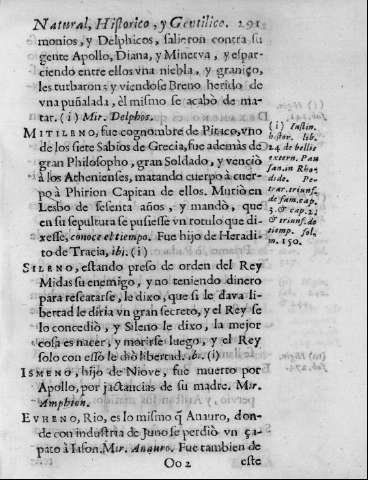 Natural, Historico, y Gentilico. 291
monios, y Delphicos, salieron contra su
gente Apollo, Diana, y Minerva, y espar-
ciendo entre ellos vna niebla, y graniço,
les turbaron; y viendose Breno herido de
vna puñalada, èl mismo se acabò de ma-
tar. (i) Mir. Delphos.
MITILENO, fue cognombre de Pitaco, vno
de los siete Sabios de Grecia, fue ademàs de
gran Philosopho, gran Soldado, y venciò
à los Athenienses, matando cuerpo à cuer-
po à Phirion Capitan de ellos. Muriò en
Lesbo de sesenta años, y mandò, que
en su sepultura se pusiesse vn rotulo que di-
xesse, conoce el tiempo. Fue hijo de Heradi-
to de Tracia, ibi. (i)
SILENO, estando preso de orden del Rey
Midas su enemigo, y no teniendo dinero
para rescatarse, le dixo, que si le dava li-
bertad le diria vn gran secreto, y el Rey se
lo concediò, y Sileno le dixo, la mejor
cosa es nacer, y morirse luego, y el Rey
solo con esso le diò libertad. ib. (i)
ISMENO, hijo de Niove, fue muerto por
Apollo, por jactancias de su madre. Mir.
Amphion.
EVRENO, Rio, es lo mismo q̃ Anauro, don-
de con industria de Juno se perdiò vn ça-
pato à Iason. Mir. Anauro. Fue tambien de
Oo 2 este
(i) Iustin.
histor. lib.
24 de bellis
extern. Pau
san. in Rho
dide. Pe-
trar. triunf.
de fam. cap.
3. & cap. 2.
& triunf. de
tiemp. fol.
m. 150.